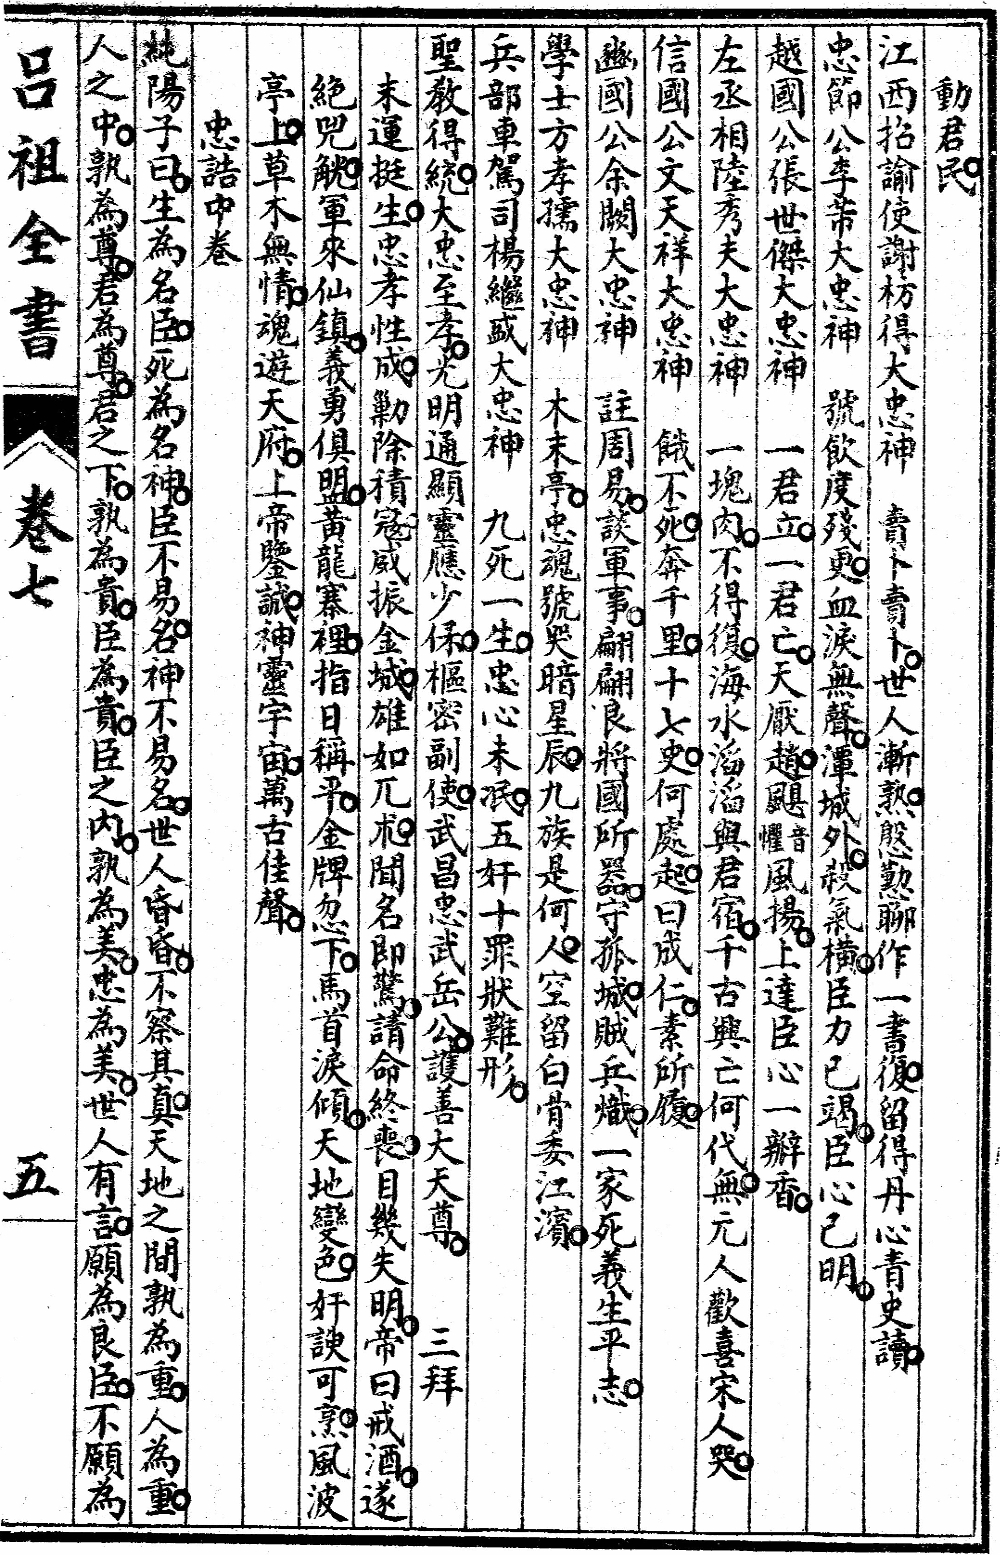 動君民
江西招諭使謝枋得大忠神　賣卜賣卜世人漸熟慇懃聊作一書復留得丹心青史讀
忠節公李芾大忠神　號飲度殘更血淚無聲潭城外殺氣橫臣力已竭臣心已明
越國公張世傑大忠神　一君立一君亡天厭趙颶音懼風揚上達臣心一瓣香
左丞相陸秀夫大忠神　一塊肉不得復海水滔滔與君宿千古興亡何代無元人歡喜宋人哭
信國公文天祥大忠神　餓不死奔千里十七史何處起曰成仁素所履
豳國公余闕大忠神　註周易談軍事翩翩良將國所器守孤城賊兵熾一家死義生平志
學士方孝孺大忠神　木末亭忠魂號哭暗星辰九族是何人空留白骨委江濱
兵部車駕司楊繼盛大忠神　九死一生忠心未泯五奸十罪狀難形
聖敎得統大忠至孝光明通顯靈應少保樞密副使武昌忠武岳公護善大天尊　三拜
末運挺生忠孝性成勦除積寇威振金城雄如兀朮聞名即驚請命終喪目幾失明帝曰戒酒遂
絕兕觥軍來仙鎮義勇俱盟黃龍寨裡指日稱平金牌忽下馬首淚傾天地變色奸諛可烹風波
亭上草木無情魂遊天府上帝鑒誠神靈宇宙萬古佳聲
忠誥中卷
純陽子曰生為名臣死為名神臣不易名神不易名世人昏昏不察其真天地之間孰為重人為重
人之中孰為尊君為尊君之下孰為貴臣為貴臣之內孰為美忠為美世人有言願為良臣不願為
呂祖全書　卷七　五